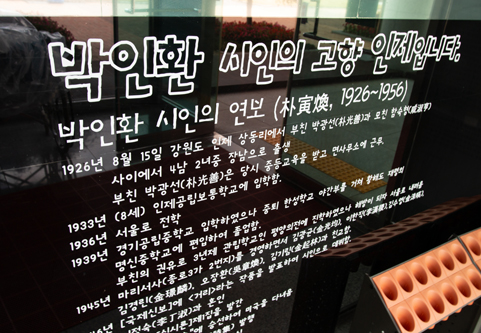 박인환 시인의 고향 인제입니다.
박인환 시인의 연보 (朴寅煥, 1926~1956)
1926년 8월 15일 강원도 인제 상동리에서 부친 박광선(朴光善)과 모친 함숙형(咸淑亨)
사이에서 4남 2녀중 장남으로 출생
부친 박광선(朴光善)은 당시 중등교육을 받고 면사무소에 근무.
1933년 (8세) 인제공립보통학교에 입학함.
1936년 서울로 전학
1939년 경기공립중학교 입학하였으나 중퇴 한성학교 야간부를 거쳐 황해도 재령의
명신중학교에 편입하여 졸업함.
부친의 권유로 3년제 관립학교인 평양의전에 진학하였으나 해방이 되자 서울로
1945년 마리서사(종로3가 2번지)를 경영하면서 김광균(金光均), 이한직(李漢稷),
김경린(金璟麟), 오장환(吳章煥), 김기림(金起林)과 친교함.
[국제신보]에 <거리>라는 작품을 발표하여 시인으로 데뷔함.
혼인